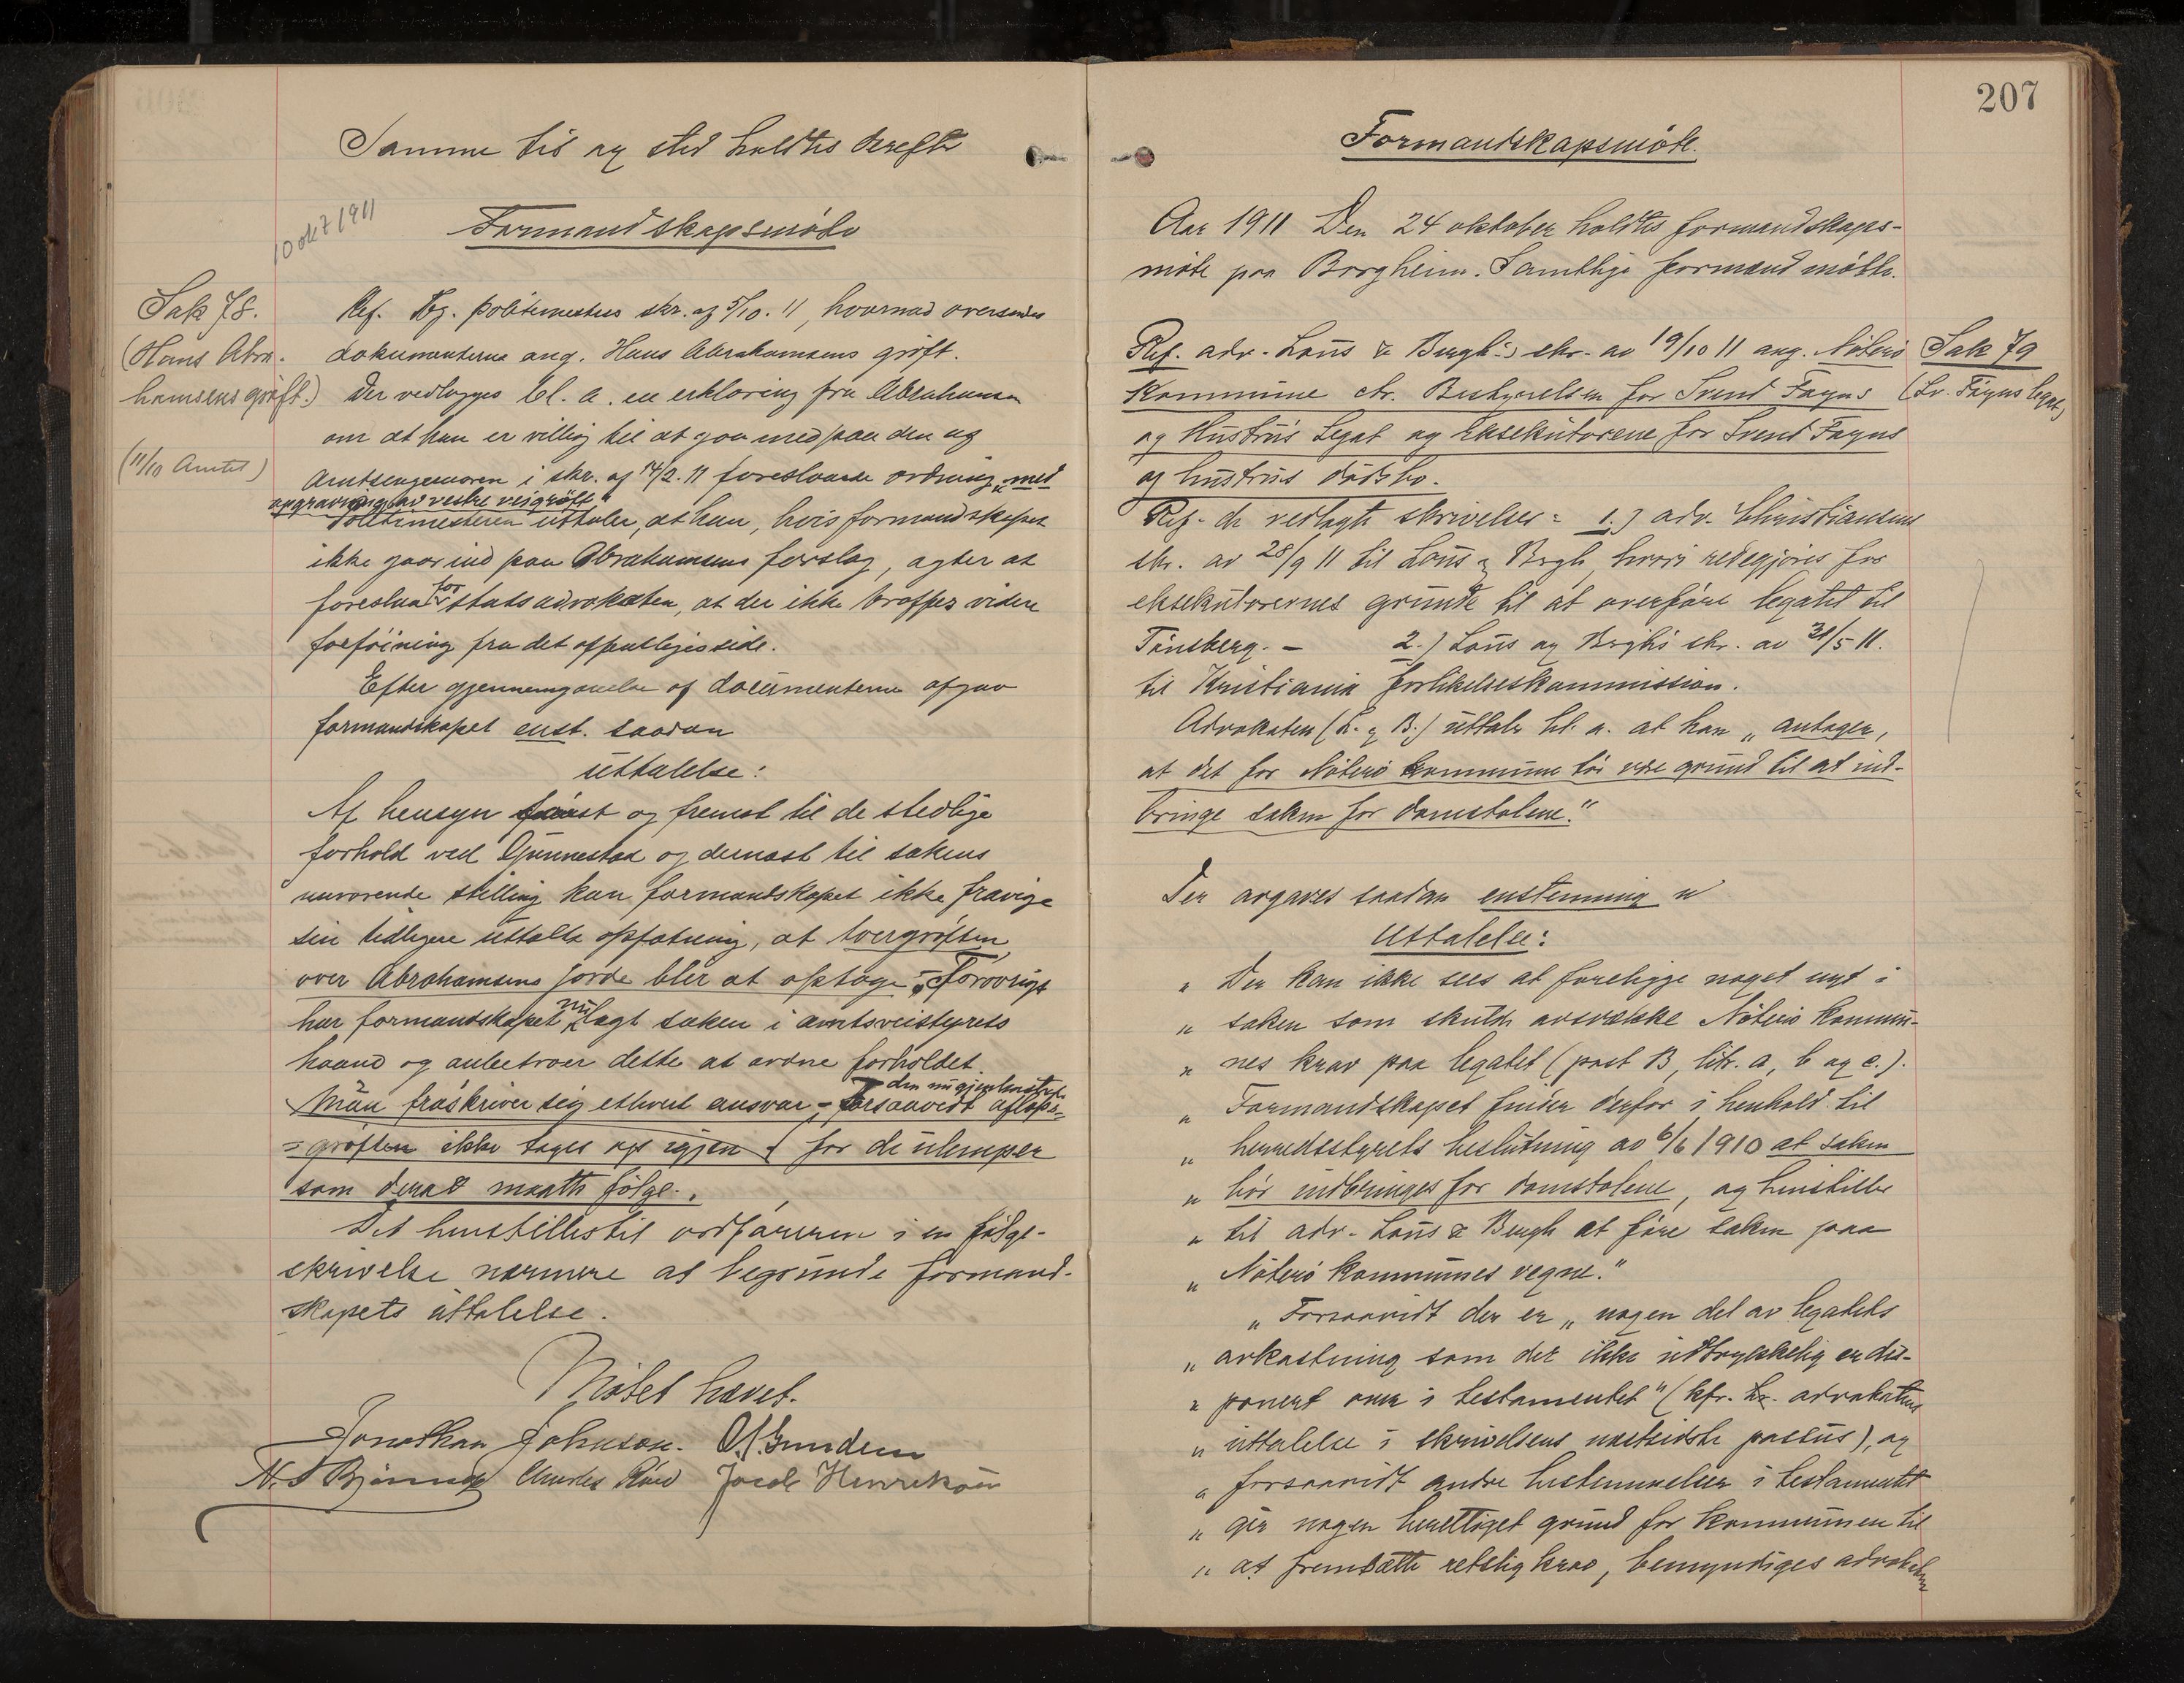 Samme tid og sted holdtes derefter
10 okt 1911
Formandskapsmöte
Sak 78.
(Hans Abra-
hamsens gröft.)
(11/10 Amtet)
Ref. Tbg. politimesters skr. af 5/10. 11, hvormed oversendes
dokumenterne ang. Hans Abrahamsens gröft.
Der vedlegges bl. a. en erklæring fra Abrahamsen
om at han er villig til at gaa med paa den af
Amtsingeniøren i skr. af 14/2. 11 foreslaaede ordning „med
opgravning av vestre veigröft"
Politimesteren uttaler, at han, hvis formandskapet
ikke gaar ind paa Abrahamsens forslag, agter at
foreslaa for statsadvokaten, at der ikke træffes videre
forföining fra det offentliges side.
Efter gjennemgaaelse af documenterne afgav
formandskapet enst. saadan
uttalelse:
Af hensyn först og fremst til de stedlige
forhold ved Gunnestad og dernæst til sakens
nuværende stilling kan formandskapet ikke fravige
sin tidligere uttalte opfatning, at tvergröften
over Abrahamsens jorde blir at optage. Forøvrigt
har formandskapet nu lagt saken i amtsveistyrets
haand og anbetroer dette at ordne forholdet.
Man fraskriver sig ethvert ansvar – forsaavidt den nu gjenkastede aflöps-
gröften ikke tages op igjen – for de ulemper
som derav maatte fölge.
Det henstilles til ordföreren i en fölge-
skrivelse nærmere at begrunde formand-
skapets uttalelse.
Mötet hævet.
Jonathan Johnson. O. J. Gundersen
N. S Bjönnes Charles Röed Jacob Henriksen
207
Formandskapsmöte.
Aar 1911 Den 24 oktober holdtes formandskaps-
möte paa Borgheim. Samtlige formænd mötte.
Sak 79
(Sv. Föyns legat)
Ref. adv. Lous & Bergh's skr. av 19/10 11 ang. Nöterö
Kommune ctr. Bestyrelsen for Svend Foyns
og Hustrus Legat og Eksekutorene for Svend Foyns
og hustrus dödsbo.
Ref. de vedlagte skrivelser: 1.) adv. Christiansens
skr. av 28/9 11 til Lous & Bergh, hvori redegjöres for
eksekutorernes grunde til at overföre legatet til
Tönsberg. – 2.) Lous og Berghs skr. av 31/5 11.
til Kristiania forlikelseskommission.
Advokaten (L. & B.) uttaler bl. a. at han „antager,
at det for Nöterö kommune bör være grund til at ind-
bringe saken for domstolene."
Der avgaves saadan enstemmig
Uttalelse:
„ Der kan ikke sees at foreligge noget nyt i
„ saken som skulde avsvække Nöterö kommu-
„ nes krav paa legatet (post B, litr. a, b og c.).
„ Formandskapet finder derfor i henhold til
„ herredsstyrets beslutning av 6/6 1910 at saken
„ bör indbringes for domstolene, og henstiller
„ til adv. Lous & Bergh at före saken paa
„ Nöterö kommunes vegne."
„ Forsaavidt der er „nogen del av legatets
„ avkastning som der ikke uttrykkelig er dis-
„ ponert over i testamentet" (kfr. hr. advokatens
„ uttalelse i skrivelsens næstsidste passus), og
„ forsaavidt andre bestemmelser i testamentet
„ gir nogen berettiget grund for kommunen til
„ at fremsætte retslig krav, bemyndiges advokaten